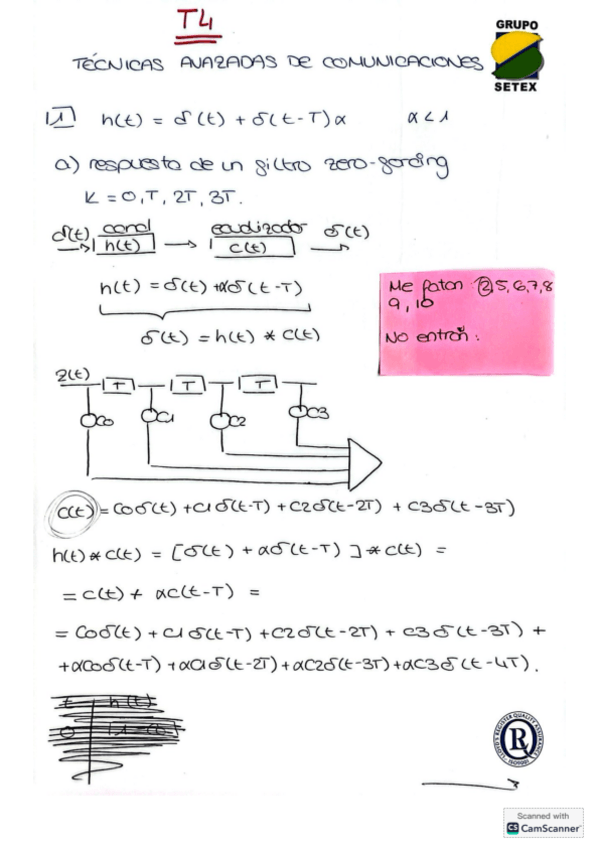 T4
GRUPO
SETEX
TÉCNICAS AVAZADAS DE COMUNICACIONES
1 h(t) = δ(t) + δ(t-T)α α < 1
a) respuesta de un filtro zero-forcing
K = 0, T, 2T, 3T.
δ(t) canal ecualizador δ(t)
h(t) c(t)
h(t) = δ(t) + αδ(t-T)
δ(t) = h(t) * c(t)
Me faltan: 2, 5, 6, 7, 8
9, 10
No entran:
z(t) T T T
C0 C1 C2 C3
c(t) = C0δ(t) + C1δ(t-T) + C2δ(t-2T) + C3δ(t-3T)
h(t) * c(t) = [δ(t) + αδ(t-T)] * c(t) =
= c(t) + αc(t-T) =
= C0δ(t) + C1δ(t-T) + C2δ(t-2T) + C3δ(t-3T) +
+ αC0δ(t-T) + αC1δ(t-2T) + αC2δ(t-3T) + αC3δ(t-4T).
t h(t)
0
LLOYD'S REGISTER QUALITY ASSURANCE
ISO9001
Scanned with
CS CamScanner